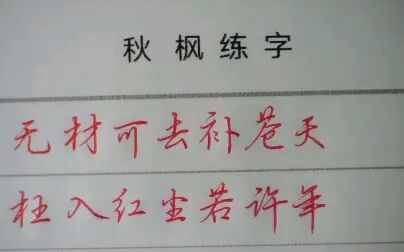 秋枫练字
无材可去补苍天
枉入红尘若许年